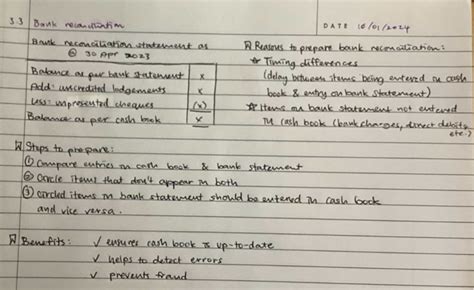 3.3 Bank reconciliation
DATE 16/01/2024
Bank reconciliation statement as
@ 30 Apr 2023
Balance as per bank statement x
Add: uncredited lodgements x
Less: unpresented cheques (x)
Balance as per cash book x
Reasons to prepare bank reconciliation:
☆ Timing differences
(delay between items being entered in cash
book & entry on bank statement)
☆ Items on bank statement not entered
in cash book (bank charges, direct debits,
etc.)
Steps to prepare:
① Compare entries in cash book & bank statement
② Circle items that don't appear in both
③ Circled items in bank statement should be entered in cash book
and vice versa.
Benefits: ✓ ensures cash book is up-to-date
✓ helps to detect errors
✓ prevents fraud